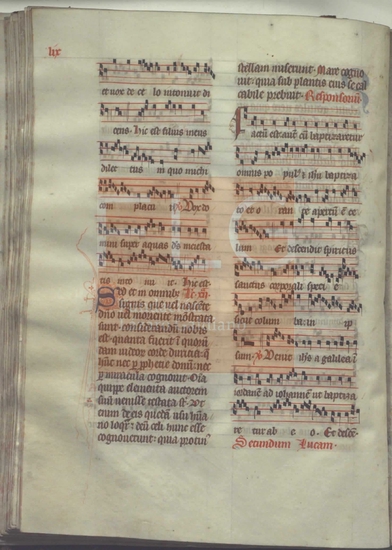 lix
et vox de ce lo intonuit di
cens hic est filius meus
dilec tus in quo michi
com placu i Vox do
mini super aquas deus maiesta
tis into nu it Hic est
Sed et in omnibus
signis que vel nascente
domino vel moriente monstrata
sunt considerandum nobis
est quanta fuerit in quorun
dam iudeorum corde duricia que
hunc nec per prophetie donum nec
per miracula cognovit Omnia
quippe elementa auctorem
suum venisse testata sunt Ut
enim de eis quedam usu huma
no loquar deum celi hunc esse
cognoverunt quia protinus
stellam miserunt Mare cogno
vit quia sub plantis eius se cal
cabile prebuit Responsorium
Factum est autem cum baptizaretur
omnis populus et ihesu baptizato
et o ran te apertum est ce
lum Et descendit spiritus
sanctus corporali speci e
sicut colum ba in ip
sum Venit ihesus a galilea in
iordanem ad iohannem ut baptiza
re tur ab e o Et desce
Secundum Lucam